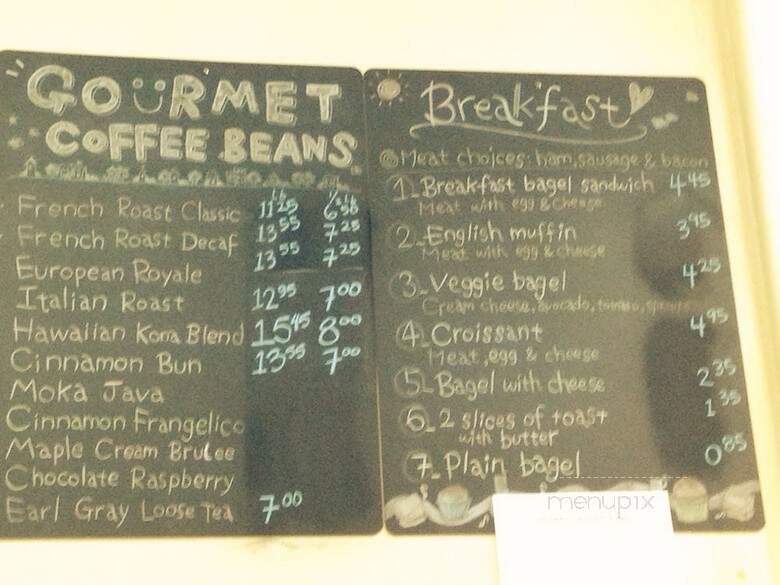 GOURMET
COFFEE BEANS
1 lb ½ lb
French Roast Classic 11 25 6 50
French Roast Decaf 13 55 7 25
European Royale 13 55 7 25
Italian Roast 12 95 7 00
Hawaiian Kona Blend 15 45 8 00
Cinnamon Bun 13 55 7 00
Moka Java
Cinnamon Frangelico
Maple Cream Brulee
Chocolate Raspberry
Earl Gray Loose Tea 7 00
Breakfast
Meat choices: ham, sausage & bacon
1. Breakfast bagel sandwich 4 45
Meat with egg & Cheese
2. English muffin 3 95
Meat with egg & cheese
3. Veggie bagel 4 25
Cream cheese, avocado, tomato,
4. Croissant 4 95
Meat, egg & cheese
5. Bagel with cheese 2 35
6. 2 slices of toast 1 35
with butter
7. Plain bagel 0 85
menupix